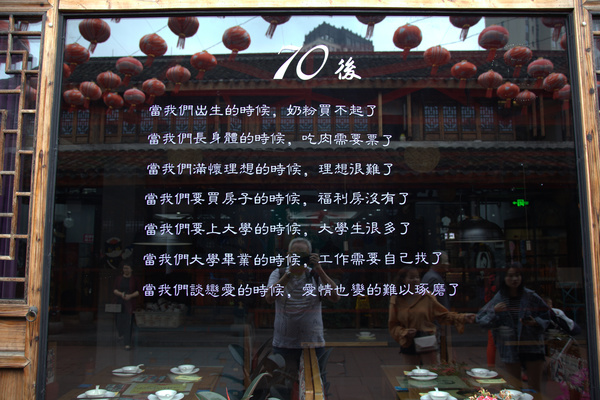 70後
當我們出生的時候，奶粉買不起了
當我們長身體的時候，吃肉需要票了
當我們滿懷理想的時候，理想很難了
當我們要買房子的時候，福利房沒有了
當我們要上大學的時候，大學生很多了
當我們大學畢業的時候，工作需要自己找了
當我們談戀愛的時候，愛情也變的難以琢磨了